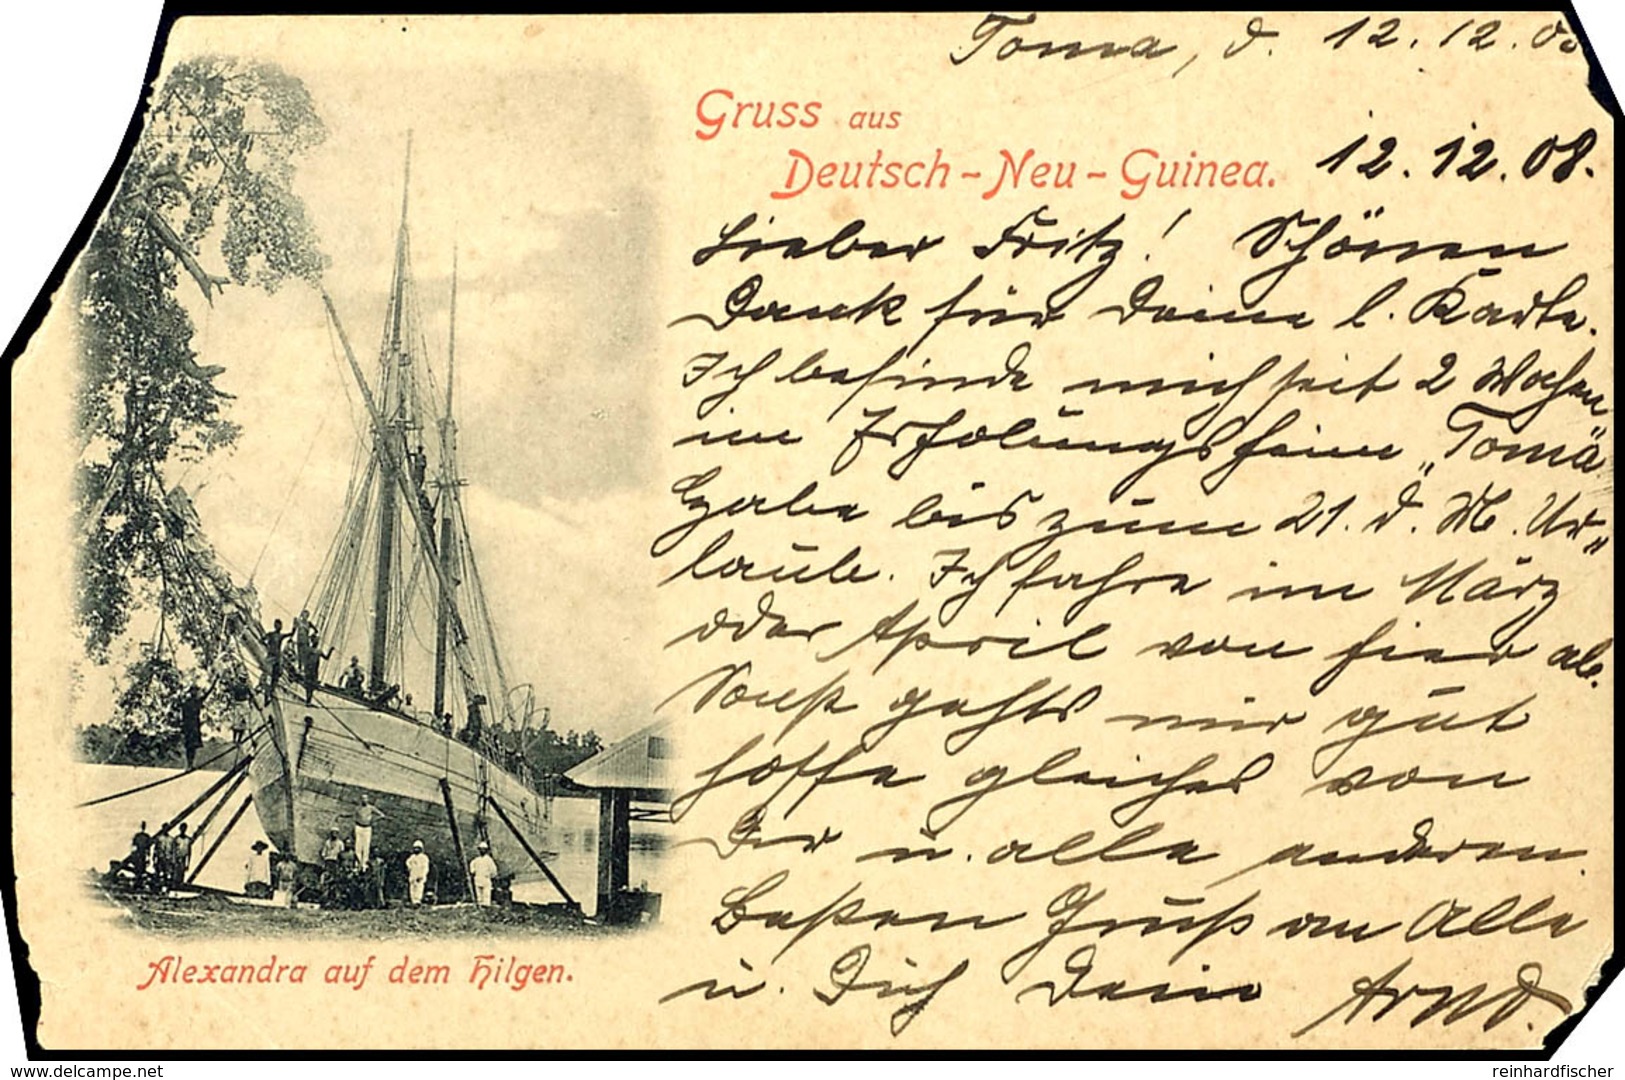 Toma, d. 12.12.08
Gruss aus
Deutsch-Neu-Guinea.
12.12.08.
Lieber Fritz! Schönen
Dank für Deine l. Karte.
Ich befinde mich seit 2 Wochen
im Erholungsheim „Toma"
Habe bis zum 21. d. M. Ur-
laub. Ich fahre im März
oder April von hier ab.
Sonst gehts mir gut
hoffe gleiches von
Dir u. alle anderen
Besten Gruß an Alle
u. Dich Dein Arnd.
Alexandra auf dem Hilgen.
www.delcampe.net
reinhardfischer